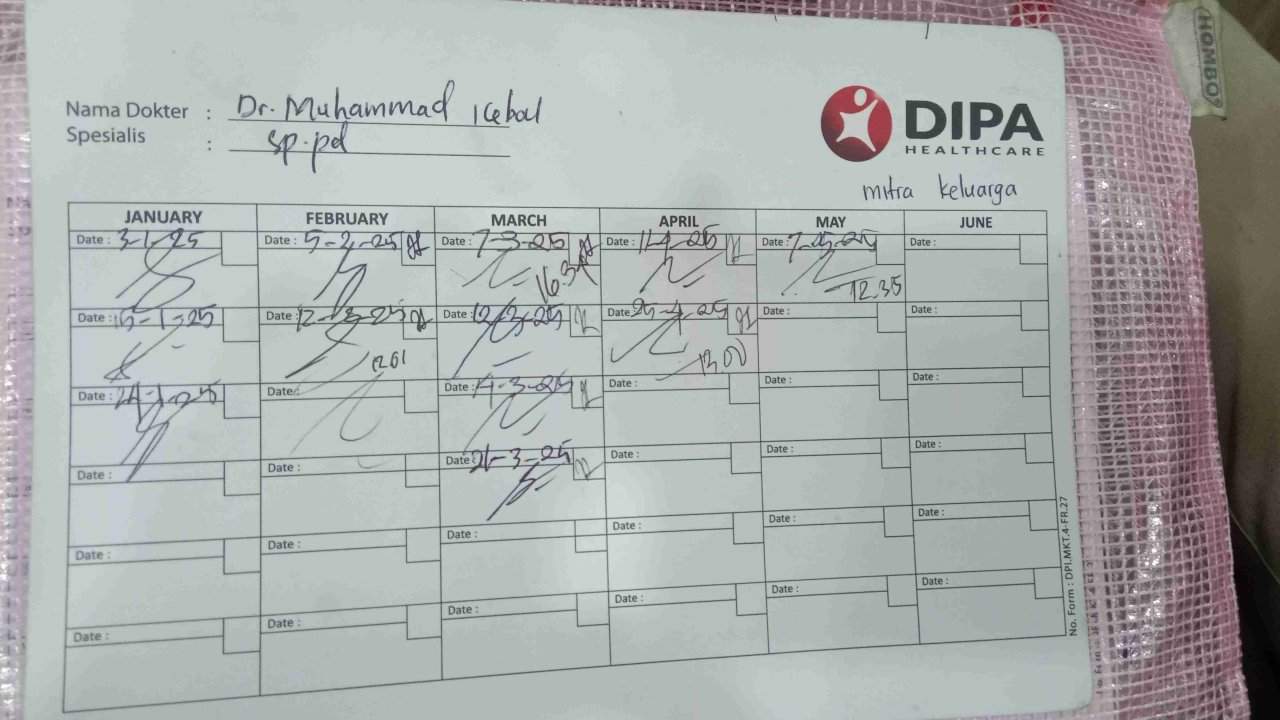 HOMBO
Nama Dokter : Dr. Muhammad
Spesialis : sp.pd
DIPA
HEALTHCARE
mitra keluarga
JANUARY FEBRUARY MARCH APRIL MAY JUNE
Date : 3-1-25 Date : 5-2-25 Date : 7-3-25 Date : 11-4-25 Date : Date :
12.35
Date : 15-1-25 Date : Date : 12-3-25 Date : 25-4-25 Date : Date :
1300
Date : Date : Date : 14-3-25 Date : Date : Date :
Date : Date : Date : 21-3-25 Date : Date : Date :
Date : Date : Date : Date : Date : Date :
Date : Date : Date : Date : Date : Date :
No. Form : DPI.MKT.4-FR.27